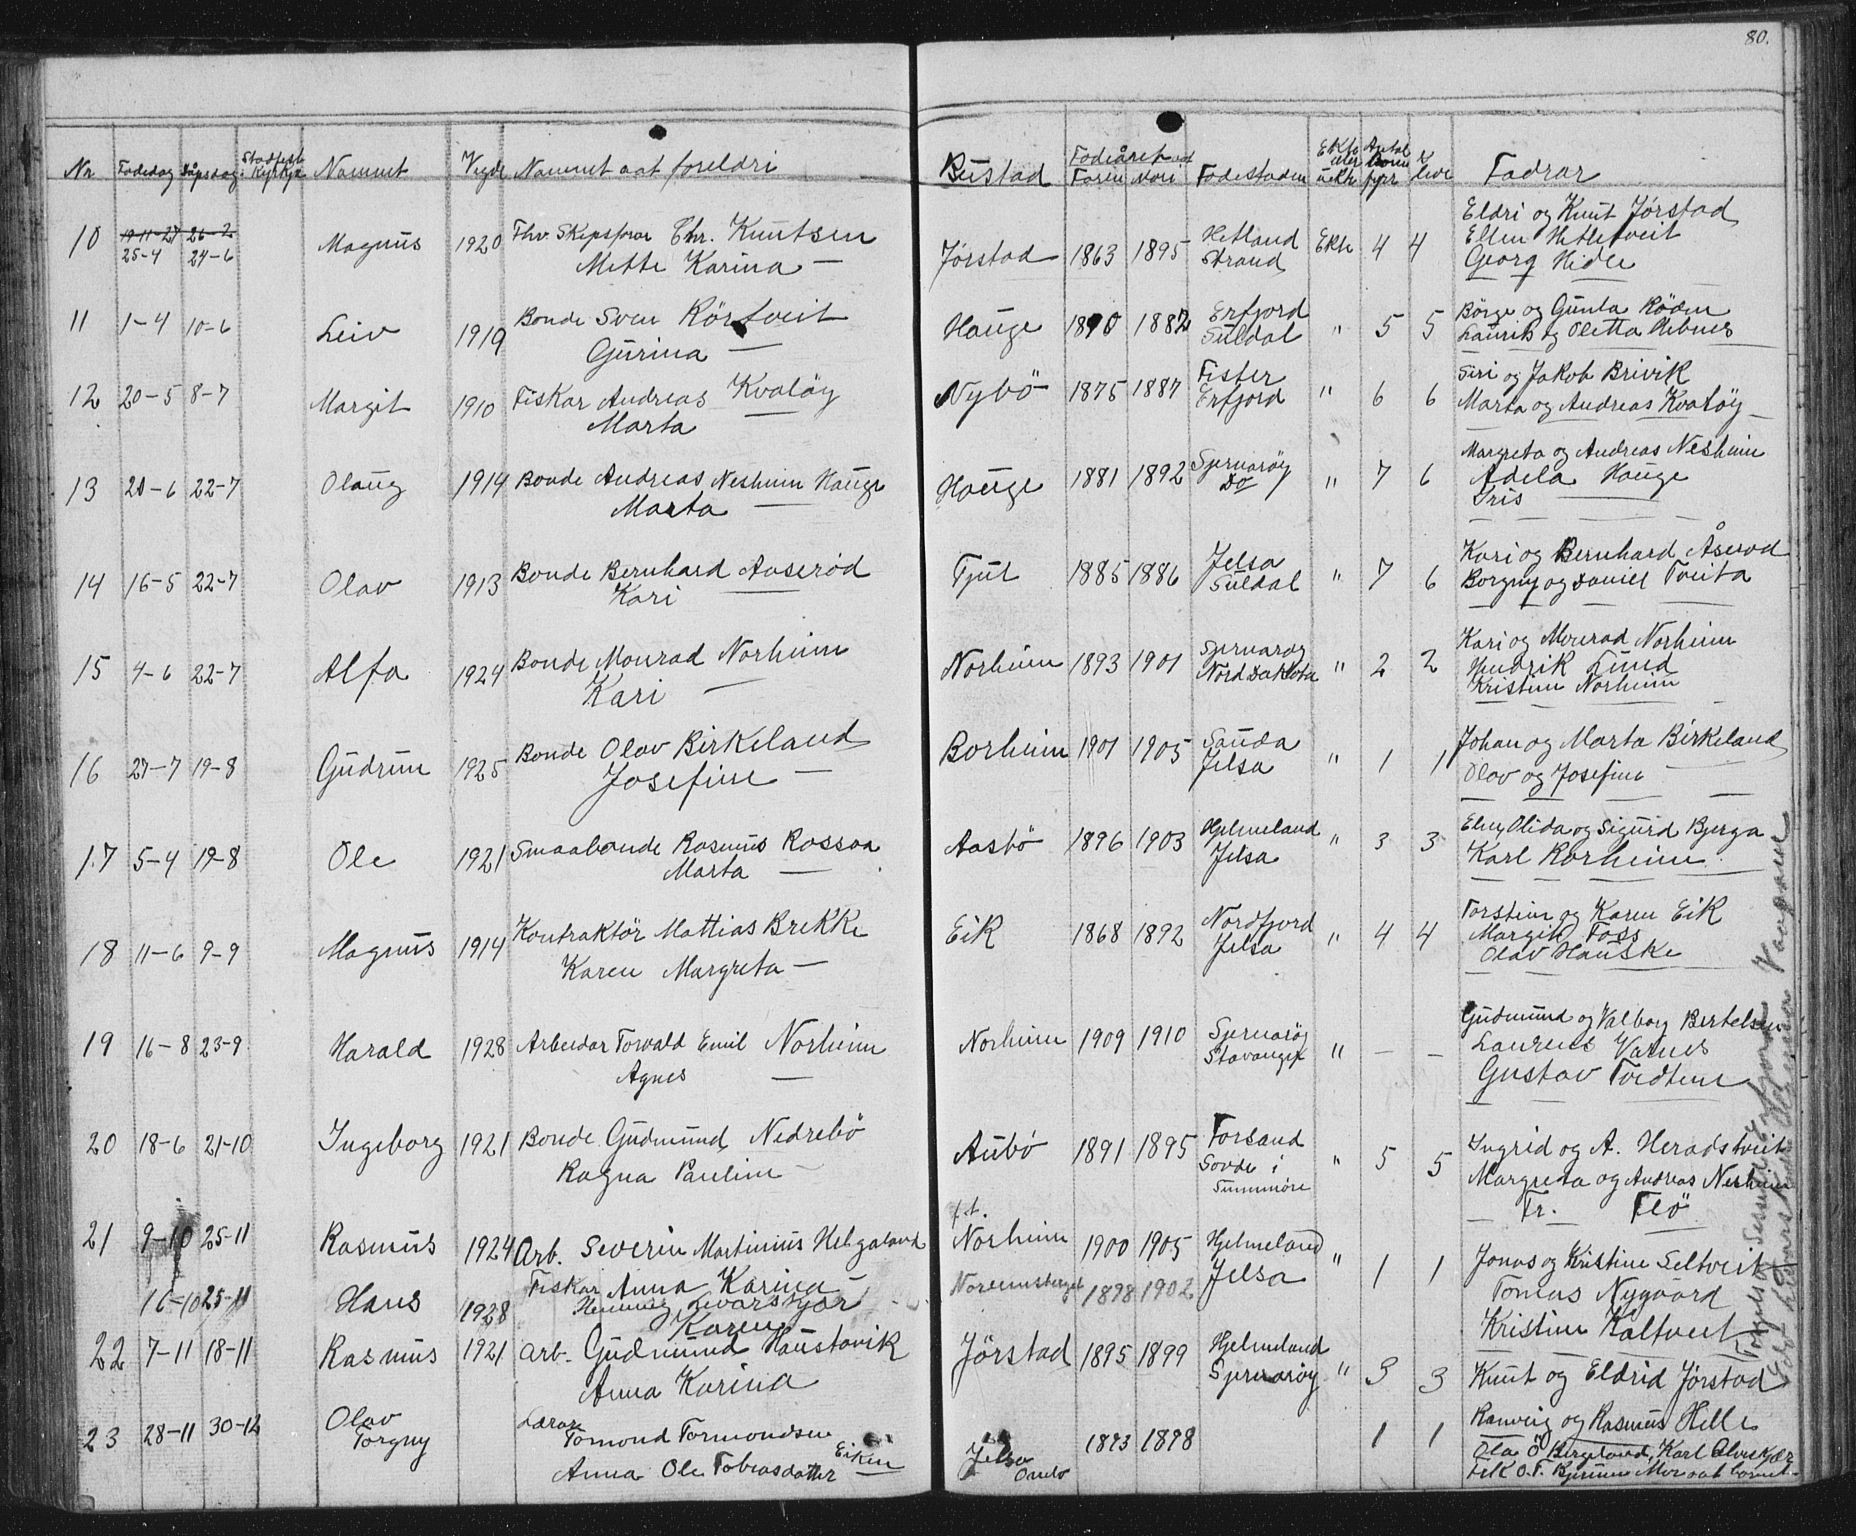 80.
Nr Fødedag Dåpsdag Stadfest i Kyrkja Namnet Vigde Namnet aat foreldri Bustad Fødeåret aat Faren Mori Fødestaden Ekte eller uekte Antal born fyrr & leve Fadrar
10 19-11-27 26-2 Magnus 1920 Fhv. Skipsfører Chr. Knutsen Jørstad 1863 1895 Hetland Ekte 4 4 Eldri og Knut Jørstad
25-4 24-6 Mette Karina — Strand Ellen Hetletveit
Georg Hidle
11 1-4 10-6 Leiv 1919 Bonde Sven Rörtveit Hauge 1890 1882 Erfjord " 5 5 Börge og Gunla Röden
Gurina — Suldal Laurits og Oletta Hebnes
12 20-5 8-7 Margit 1910 Fiskar Andreas Kvaløy Nybö 1875 1887 Fister " 6 6 Siri og Jakob Brivik
Marta Erfjord Marta og Andreas Kvaløy
13 20-6 22-7 Olaug 1914 Bonde Andreas Nesheim Hauge Hauge 1881 1892 Sjernarøy " 7 6 Margreta og Andreas Nesheim
Marta — Do Adela Hauge
Iris —
14 16-5 22-7 Olav 1913 Bonde Bernhard Aaserød Tjul 1885 1886 Jelsa " 7 6 Kari og Bernhard Åserød
Kari — Suldal Borgny og Daniel Tveita
15 4-6 22-7 Alfa 1924 Bonde Monrad Norheim Norheim 1893 1901 Sjernarøy " 2 2 Kari og Monrad Norheim
Kari — Nord Dakota Hendrik Lund
Kristine Norheim
16 27-7 19-8 Gudrun 1925 Bonde Olav Birkeland Borheim 1901 1905 Sauda " 1 1 Johan og Marta Birkeland
Josefine — Jelsa Olav og Josefine —
17 5-4 19-8 Ole 1921 Smaabonde Rasmus Rossaa Aasbö 1896 1903 Hjelmeland " 3 3 Elen Olida og Sigurd Bjerga
Marta — Jelsa Karl Rorheim
18 11-6 9-9 Magnus 1914 Kontraktör Mattias Brekke Eik 1868 1892 Nordfjord " 4 4 Torstein og Karen Eik
Karen Margreta — Jelsa Margit Foss
Olav Hauske
19 16-8 23-9 Harald 1928 Arbeidar Torvald Emil Norheim Norheim 1909 1910 Sjernarøy " — — Gudmund og Valborg Bertelsen
Agnes — Stavanger Laurent Varnes
Gustav Tvedtene
20 18-6 21-10 Ingeborg 1921 Bonde Gudmund Nedrebö Aubö 1891 1895 Forsand " 5 5 Ingrid og A. Heradstveit
Ragna Pauline — Sovde i Margreta og Andreas Nesheim
Sunnmöre Fr. Flö
21 9-10 25-11 Rasmus 1924 Arb. Severin Martinius Helgaland f.t. Norheim 1900 1905 Hjelmeland " 1 1 Jonas og Kristine Seltveit
Anna Karina — Jelsa Tomas Nygaard
16-10 25-11 Hans 1928 Fiskar Henning Kvarskjær 1898 1902
Karen Kristine Kaltveit
22 7-11 18-11 Rasmus 1921 Arb. Gudmund Haustavik Jørstad 1895 1899 Hjelmeland " 3 3 Knut og Eldrid Jørstad
Anna Karina Sjernarøy
23 28-11 30-12 Olav Lærar Jelsa 1893 1898 1 1 Ranveig og Rasmus Helle
Torgny Tomond Tormondsen Eiken Ola Ö Bergeland, Karl
Anna Ole Tobiasdotter Ombo